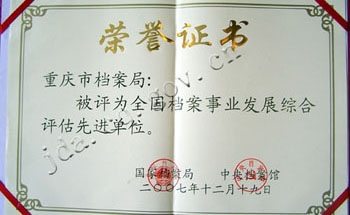 荣誉证书
重庆市档案局:
被评为全国档案事业发展综合
评估先进单位。
国家档案局 中央档案馆
二〇〇七年十二月十九日